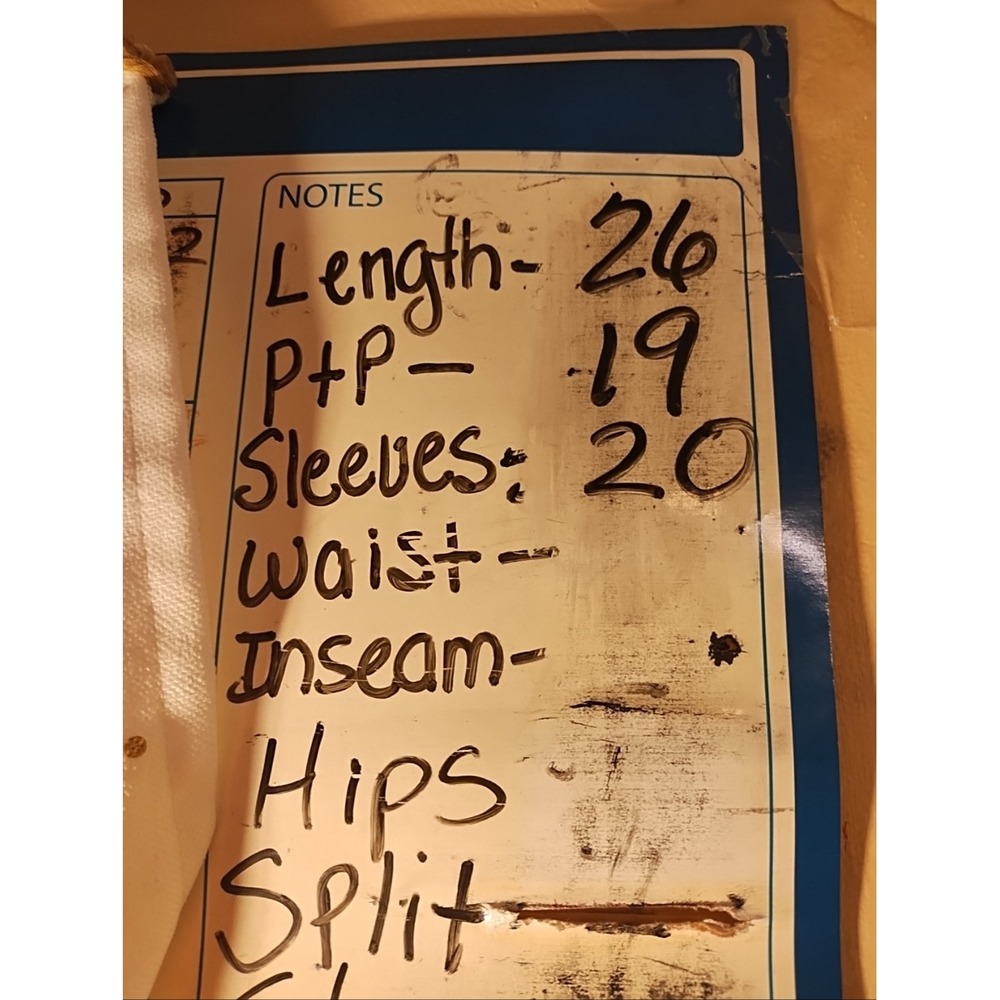 NOTES
Length- 26
P+P- 19
Sleeves: 20
Waist-
Inseam-
Hips
Split